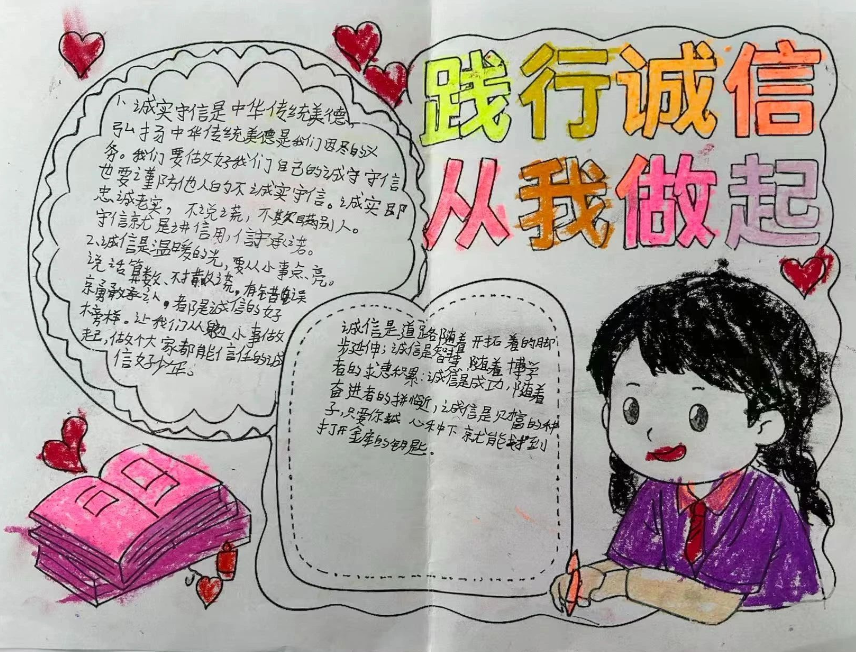 践行诚信
从我做起
1、诚实守信是中华传统美德，
弘扬中华传统美德是我们应尽的义
务。我们要做好我们自己的诚守守信
也要谨防他人的不诚实守信。诚实即
忠诚老实，不说谎，不欺瞒别人。
守信就是讲信用，信守承诺。
2.诚信是温暖的光，要从小事点亮。
说话算数、不撒谎，有错误
勇敢承认，都是诚信的好
榜样。让我们从小事做
起，做个大家都能信任的诚
信好少年。
诚信是道路随着开拓着的脚
步延伸；诚信是智慧随着博学
者的求积累；诚信是成功，随着
奋进者的拼临近；诚信是财富的种
子，只要你诚心种下就能找到
打开金库的钥匙。